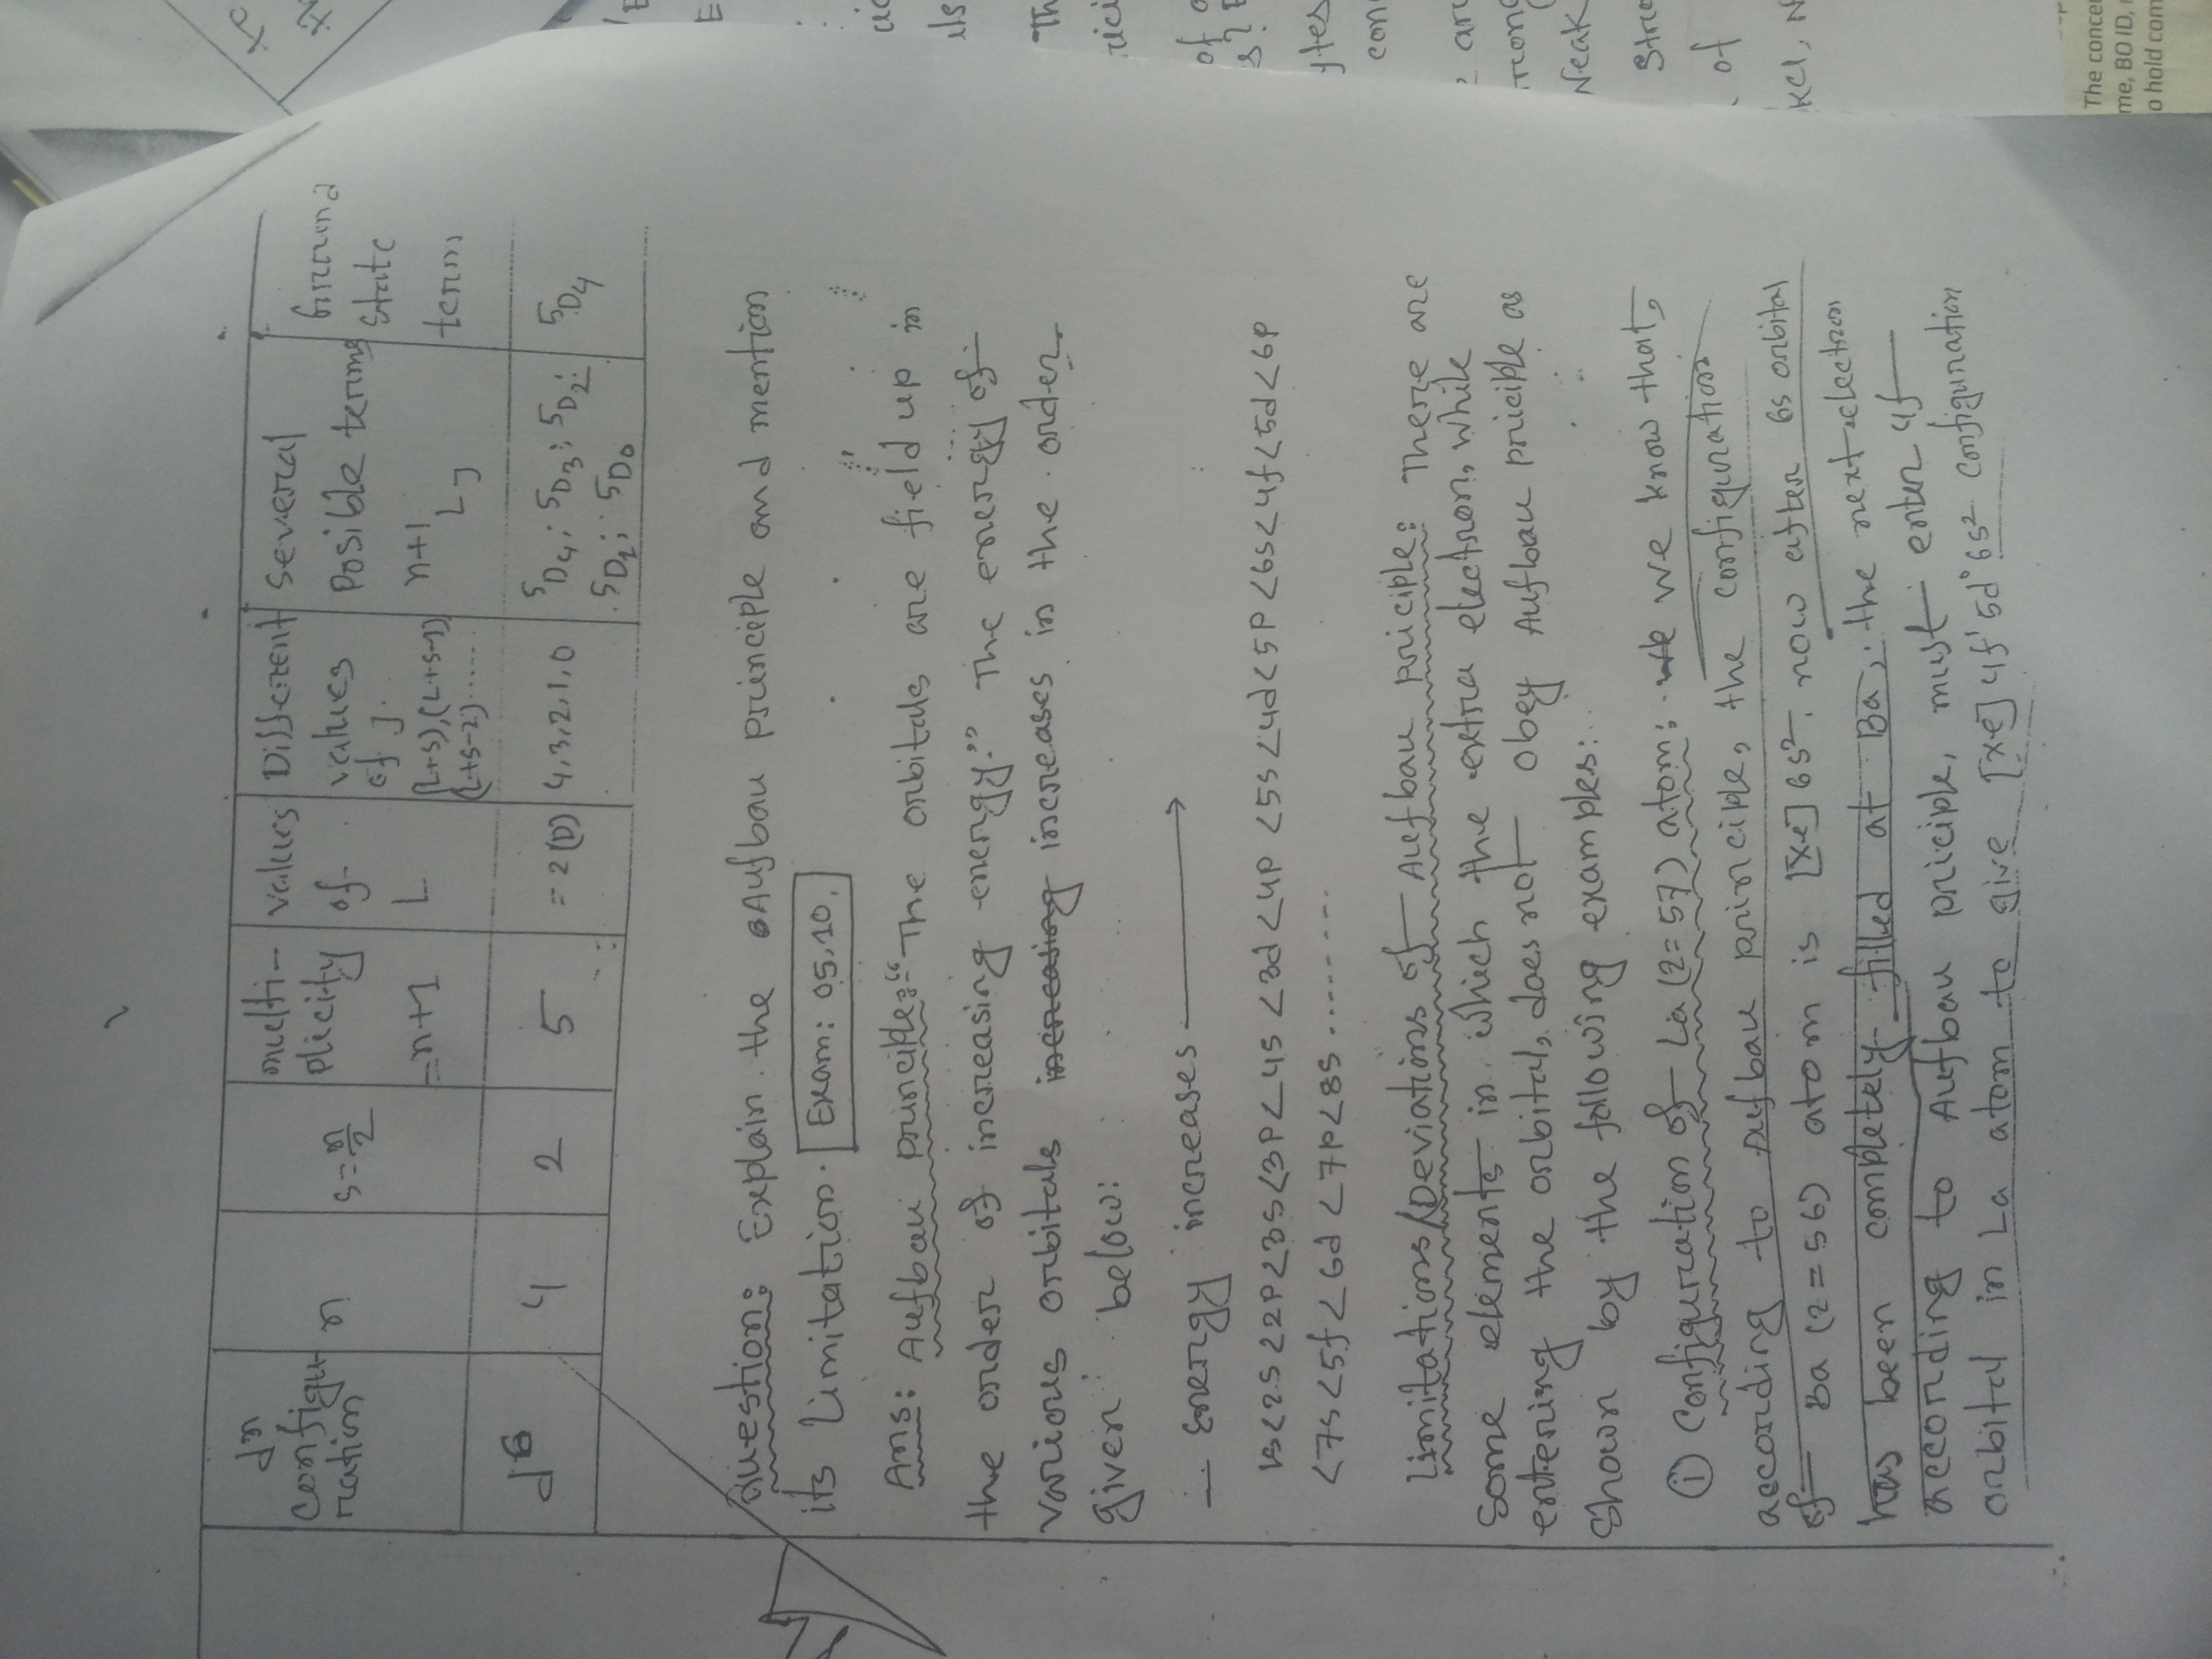 dⁿ configu-ration | n | s=n/2 | multi-plicity =n+1 | values of L | Different values of J. (L+S),(L+S-1) (L+S-2)...... | several Posible terms n+1 L J | Ground state term
d⁶ | 4 | 2 | 5 | =2(D) | 4,3,2,1,0 | ⁵D₄; ⁵D₃; ⁵D₂; ⁵D₁; ⁵D₀ | ⁵D₄
Question: Explain the Aufbau principle and mention
its limitation. Exam: 05,10.
Ans: Aufbau principle: "The orbitals are field up in
the order of increasing energy." The energy of
various orbitals increasing increases in the order
given below:
Energy increases →
1s<2s<2p<3s<3p<4s<3d<4p<5s<4d<5p<6s<4f<5d<6p
<7s<5f<6d<7p<8s ........
Limitations/Deviations of Aufbau priciple: There are
some elements in which the extra electron, while
entering the orbital, does not obey Aufbau priciple as
shown by the following examples:
(i) Configuration of La (z=57) atom: we we know that,
according to Aufbau principle, the configuration
of Ba (z=56) atom is [Xe] 6s². now after 6s orbital
has been completely filled at Ba, the next electron
according to Aufbau priciple, must enter 4f
orbital in La atom to give [Xe] 4f¹ 5d° 6s² configuration
Th
of
s?
ytes
con
are
rong
Weak
of
KCl, N
The concer
me, BO ID,
o hold com